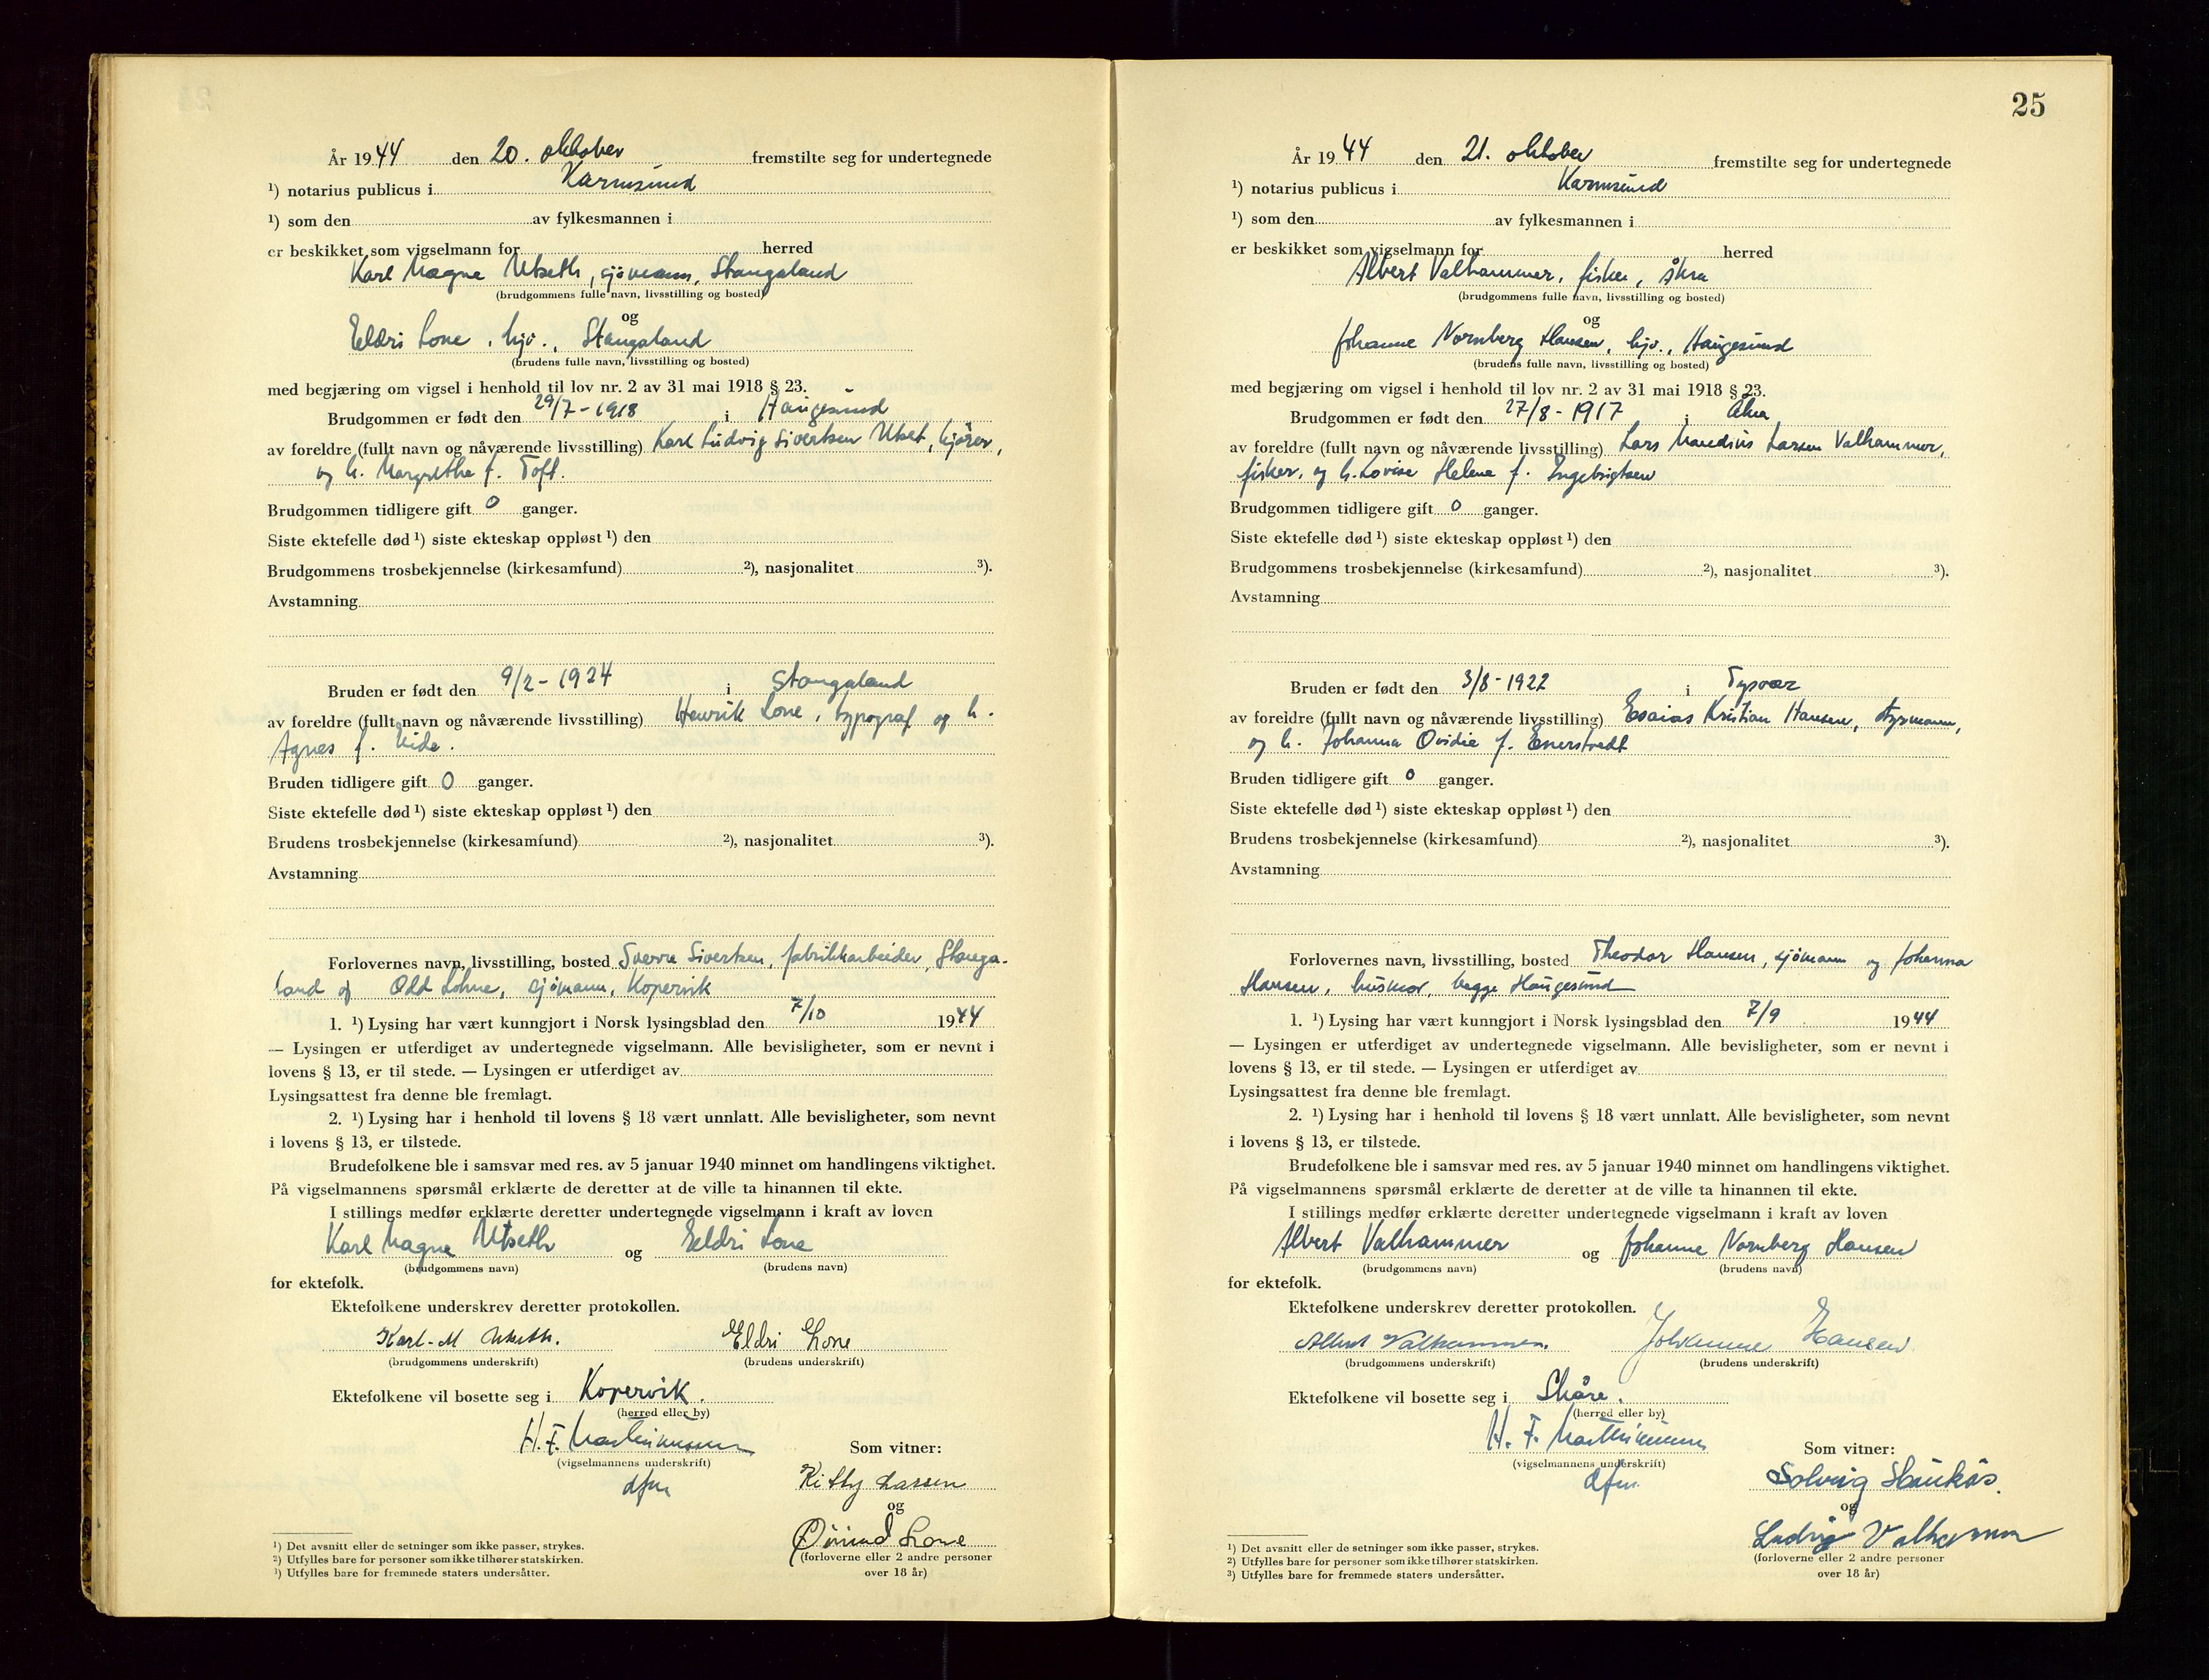 År 1944 den 20. oktober fremstilte seg for undertegnede
¹) notarius publicus i Karmsund
¹) som den av fylkesmannen i
er beskikket som vigselmann for herred
Karl Magne Utseth, sjømann, Stangaland
(brudgommens fulle navn, livsstilling og bosted)
og
Eldri Lone, hjv., Stangaland
(brudens fulle navn, livsstilling og bosted)
med begjæring om vigsel i henhold til lov nr. 2 av 31 mai 1918 § 23.
Brudgommen er født den 29/7-1918 i Haugesund
av foreldre (fullt navn og nåværende livsstilling) Karl Ludvig Sivertsen Utset, kjører,
og h. Margrethe f. Toft.
Brudgommen tidligere gift 0 ganger.
Siste ektefelle død ¹) siste ekteskap oppløst ¹) den
Brudgommens trosbekjennelse (kirkesamfund) ²), nasjonalitet ³).
Avstamning
Bruden er født den 9/2-1924 i Stangaland
av foreldre (fullt navn og nåværende livsstilling) Henrik Lone, typograf og h.
Agnes f. Eide.
Bruden tidligere gift 0 ganger.
Siste ektefelle død ¹) siste ekteskap oppløst ¹) den
Brudens trosbekjennelse (kirkesamfund) ²), nasjonalitet ³).
Avstamning
Forlovernes navn, livsstilling, bosted Sverre Sivertsen, fabrikkarbeider, Stanga-
land og Odd Lohne, sjømann, Kopervik
1. ¹) Lysing har vært kunngjort i Norsk lysingsblad den 7/10 1944
— Lysingen er utferdiget av undertegnede vigselmann. Alle bevisligheter, som er nevnt i
lovens § 13, er til stede. — Lysingen er utferdiget av
Lysingsattest fra denne ble fremlagt.
2. ¹) Lysing har i henhold til lovens § 18 vært unnlatt. Alle bevisligheter, som nevnt
i lovens § 13, er tilstede.
Brudefolkene ble i samsvar med res. av 5 januar 1940 minnet om handlingens viktighet.
På vigselmannens spørsmål erklærte de deretter at de ville ta hinannen til ekte.
I stillings medfør erklærte deretter undertegnede vigselmann i kraft av loven
Karl Magne Utseth og Eldri Lone
(brudgommens navn) (brudens navn)
for ektefolk.
Ektefolkene underskrev deretter protokollen.
Karl-M Utseth. Eldri Lone
(brudgommens underskrift) (brudens underskrift)
Ektefolkene vil bosette seg i Kopervik.
(herred eller by)
H. F. Martinussen Som vitner:
(vigselmannens underskrift)
dfm Kitty Larsen
og
Øivind Lone
(forloverne eller 2 andre personer
over 18 år)
¹) Det avsnitt eller de setninger som ikke passer, strykes.
²) Utfylles bare for personer som ikke tilhører statskirken.
³) Utfylles bare for fremmede staters undersåtter.
25
År 1944 den 21. oktober fremstilte seg for undertegnede
¹) notarius publicus i Karmsund
¹) som den av fylkesmannen i
er beskikket som vigselmann for herred
Albert Valhammer, fisker, Åkra
(brudgommens fulle navn, livsstilling og bosted)
og
Johanne Nornberg Hansen, hjv., Haugesund
(brudens fulle navn, livsstilling og bosted)
med begjæring om vigsel i henhold til lov nr. 2 av 31 mai 1918 § 23.
Brudgommen er født den 27/8-1917 i Åkra
av foreldre (fullt navn og nåværende livsstilling) Lars Larsen Valhammer,
fisker, og h. Lovise Helene f. Engebrigtsen
Brudgommen tidligere gift 0 ganger.
Siste ektefelle død ¹) siste ekteskap oppløst ¹) den
Brudgommens trosbekjennelse (kirkesamfund) ²), nasjonalitet ³).
Avstamning
Bruden er født den 3/8-1922 i Tysvær
av foreldre (fullt navn og nåværende livsstilling) Esaias Kristian Hansen, styrmann,
og h. Johanna Ovidie f. Enerstvedt
Bruden tidligere gift 0 ganger.
Siste ektefelle død ¹) siste ekteskap oppløst ¹) den
Brudens trosbekjennelse (kirkesamfund) ²), nasjonalitet ³).
Avstamning
Forlovernes navn, livsstilling, bosted Theodor Hansen, sjømann og Johanna
Hansen, husmor, begge Haugesund
1. ¹) Lysing har vært kunngjort i Norsk lysingsblad den 7/9 1944
— Lysingen er utferdiget av undertegnede vigselmann. Alle bevisligheter, som er nevnt i
lovens § 13, er til stede. — Lysingen er utferdiget av
Lysingsattest fra denne ble fremlagt.
2. ¹) Lysing har i henhold til lovens § 18 vært unnlatt. Alle bevisligheter, som nevnt
i lovens § 13, er tilstede.
Brudefolkene ble i samsvar med res. av 5 januar 1940 minnet om handlingens viktighet.
På vigselmannens spørsmål erklærte de deretter at de ville ta hinannen til ekte.
I stillings medfør erklærte deretter undertegnede vigselmann i kraft av loven
Albert Valhammer og Johanne Nornberg Hansen
(brudgommens navn) (brudens navn)
for ektefolk.
Ektefolkene underskrev deretter protokollen.
Albert Valhammer. Johanne Hansen
(brudgommens underskrift) (brudens underskrift)
Ektefolkene vil bosette seg i Skåre.
(herred eller by)
H. F. Martinussen Som vitner:
(vigselmannens underskrift)
dfm. Solveig Haukås.
og
Ludvig Valhammer
(forloverne eller 2 andre personer
over 18 år)
¹) Det avsnitt eller de setninger som ikke passer, strykes.
²) Utfylles bare for personer som ikke tilhører statskirken.
³) Utfylles bare for fremmede staters undersåtter.